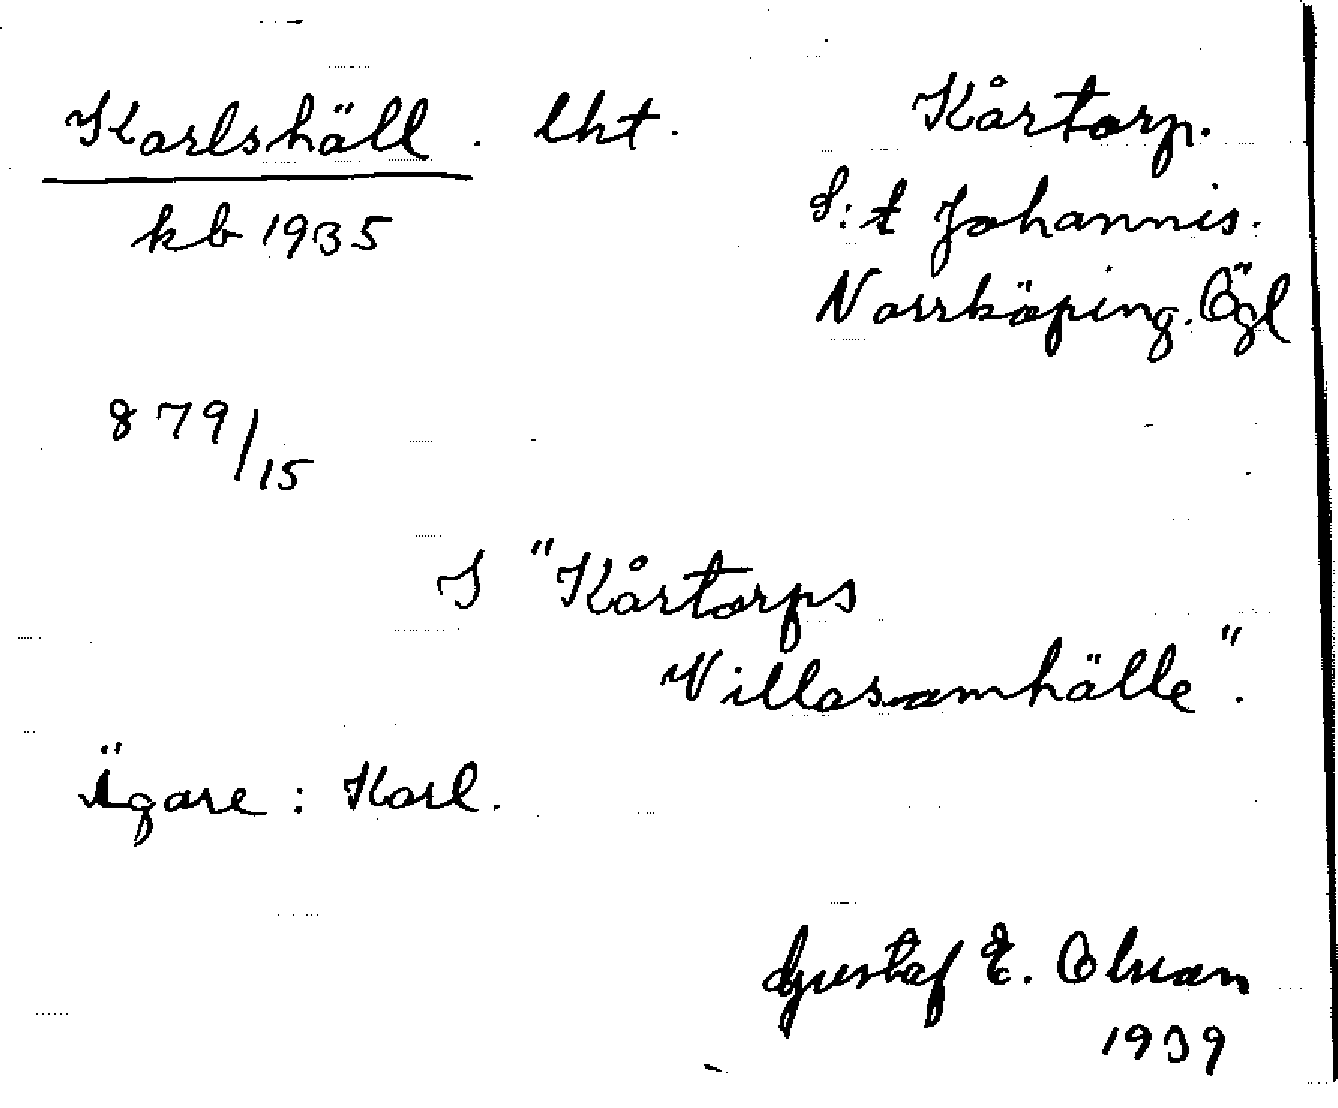 Karlshäll. lht.
kb 1935
Kårtorp.
S:t Johannis.
Norrköping. Ögl
879/15
I "Kårtorps
Villasamhälle".
Ägare: Karl.
Gustaf E. Olsson
1939